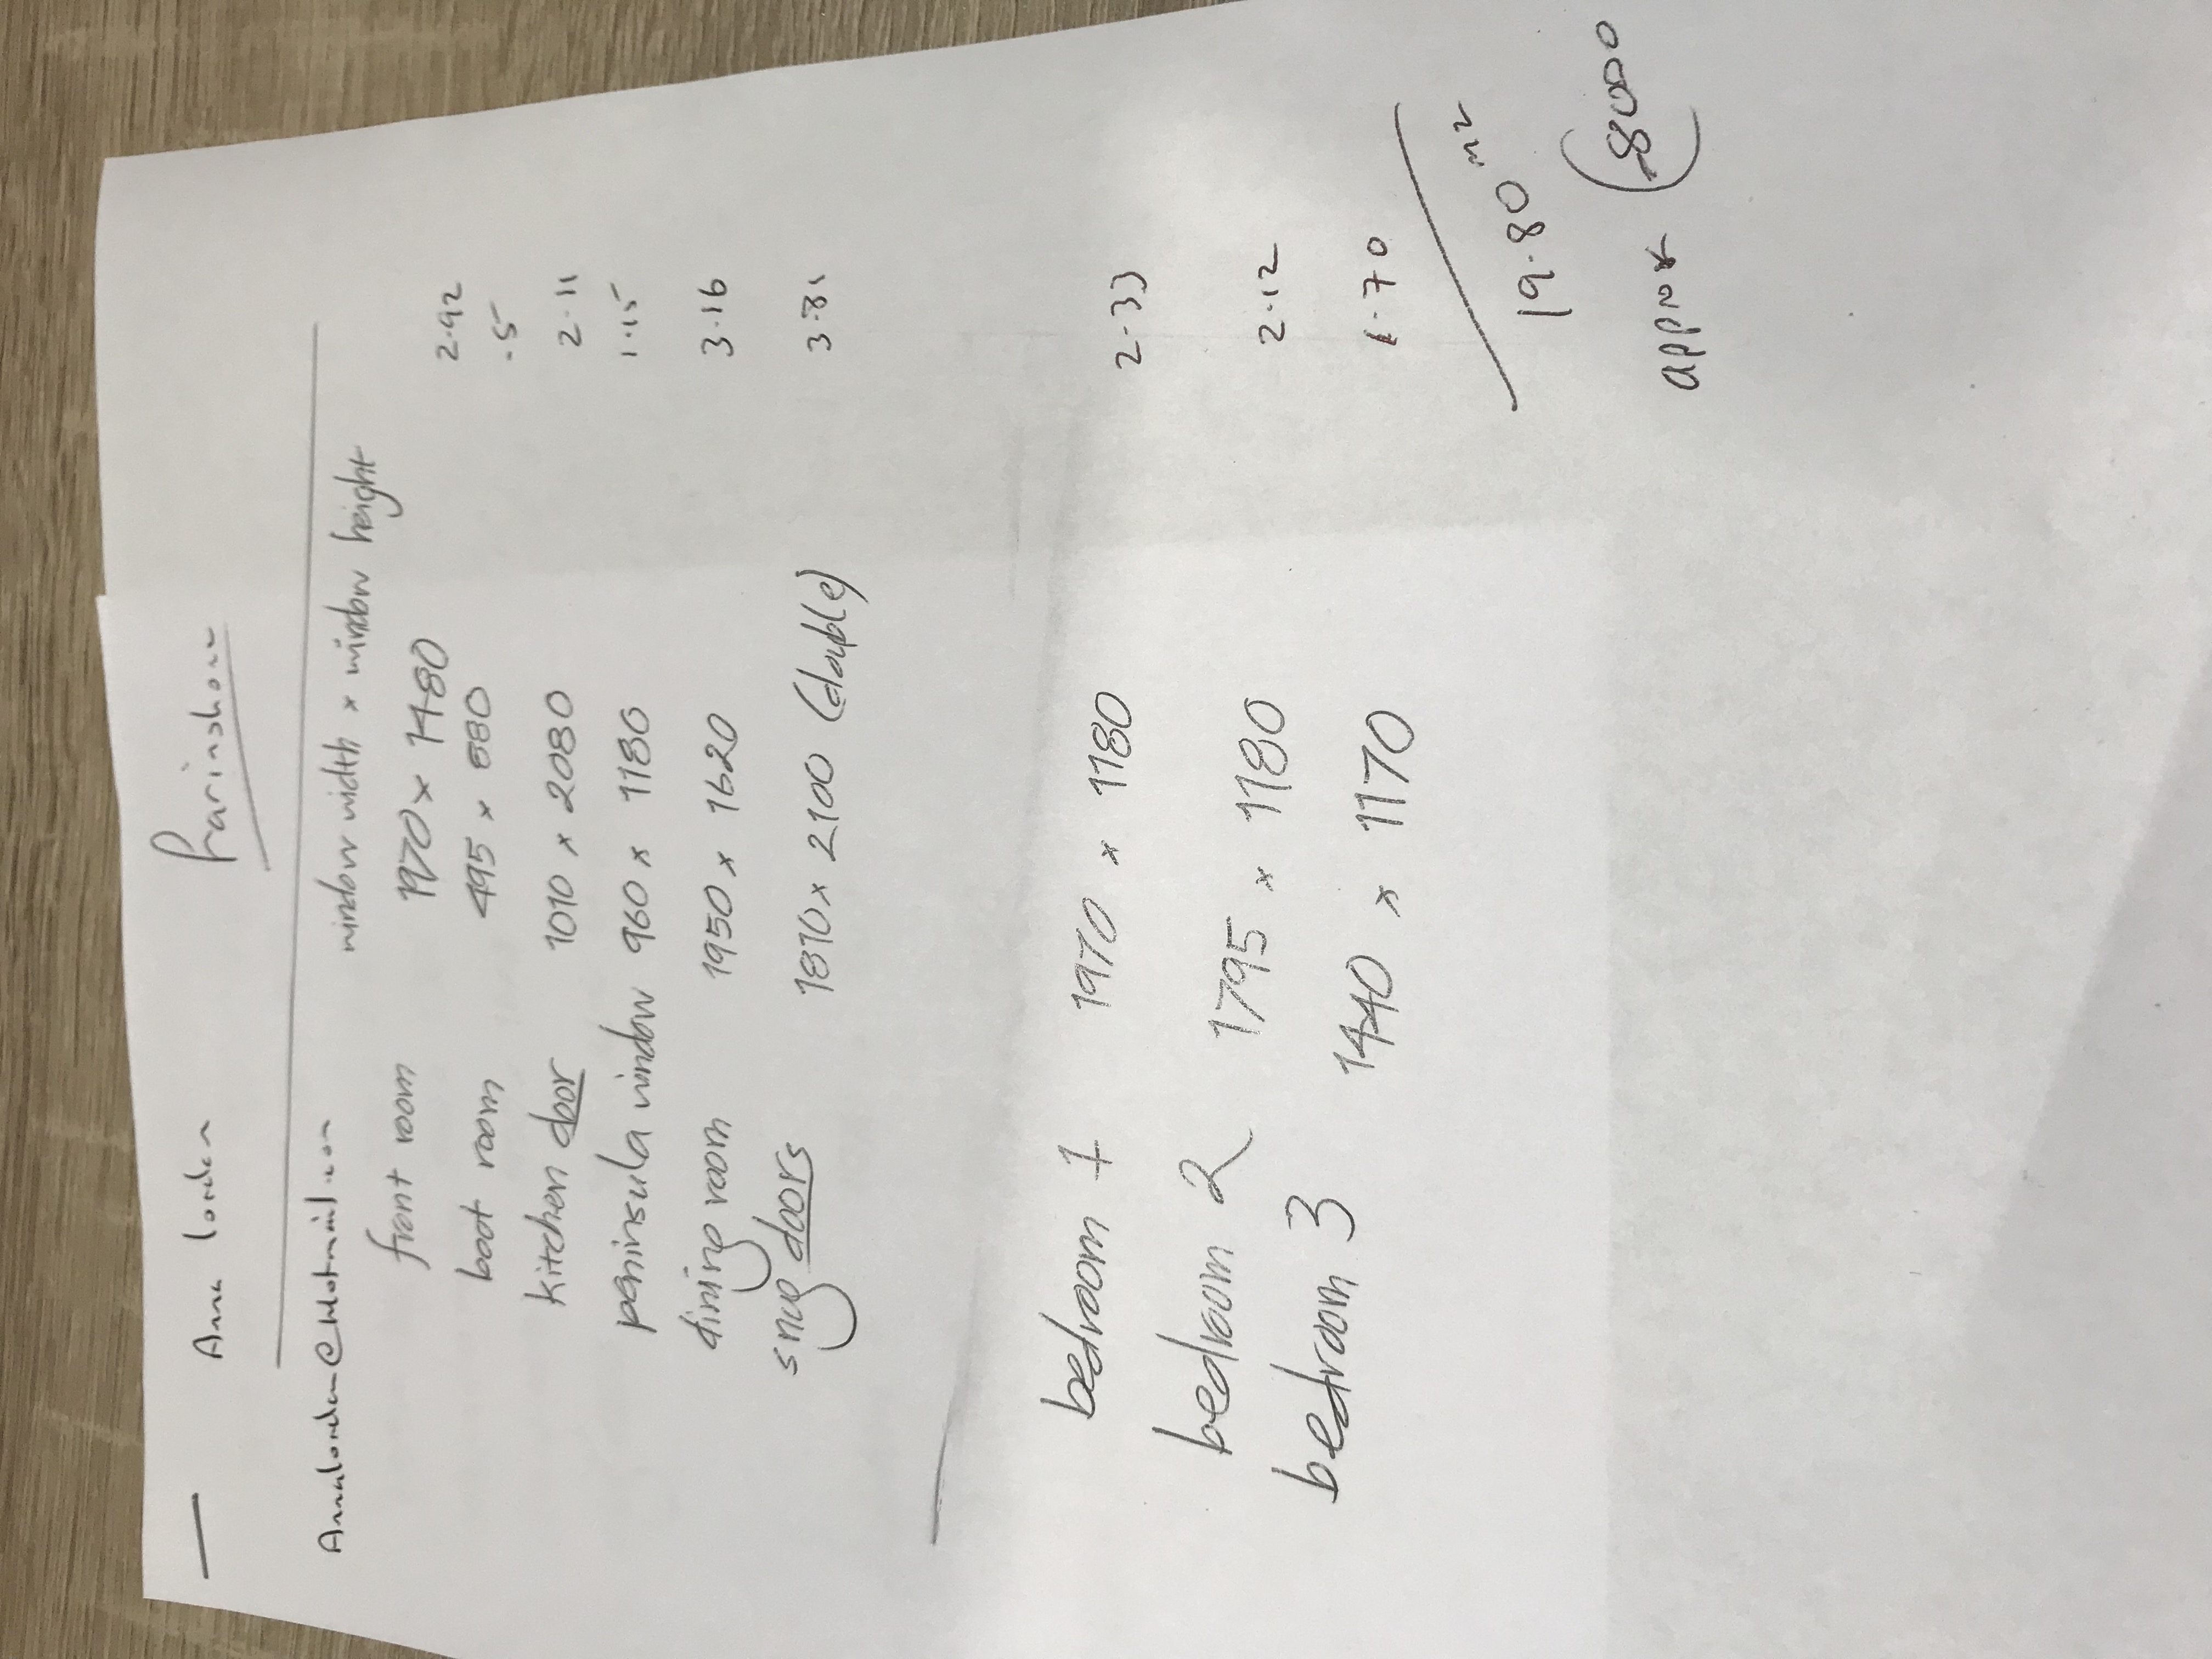 Anna
window width x window height
front room 1970 x 1480 2.92
boot room 495 x 880 .5
kitchen door 1010 x 2080 2.11
peninsula window 960 x 1180 1.15
dining room 1950 x 1620 3.16
snug doors 1810 x 2100 (double) 3.81
bedroom 1 1970 x 1180 2.33
bedroom 2 1795 x 1180 2.12
bedroom 3 1440 x 1170 1.70
19.80 m2
approx 8000